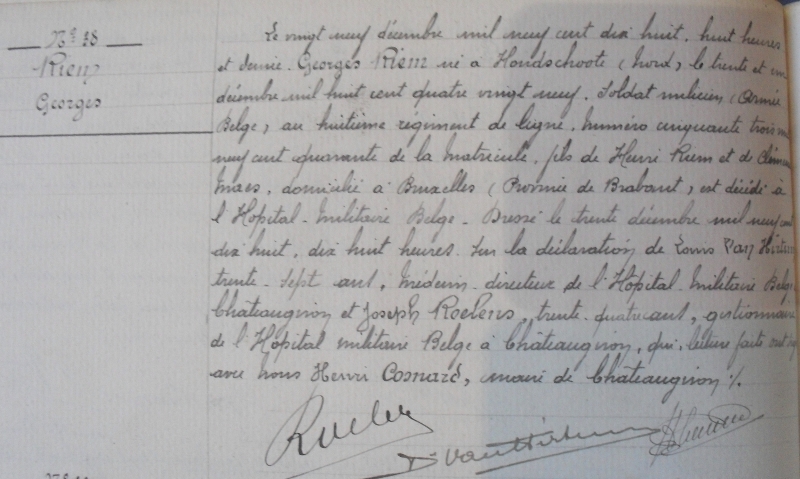 Nº 88
Riem
Georges
Le vingt neuf décembre mil neuf cent dix huit, huit heures
et demie. Georges Riem né à Hondschoote (Nord), le trente et un
décembre mil huit cent quatre vingt neuf, soldat milicien (Armée
Belge), au huitième régiment de ligne, numéro cinquante trois mil
neuf cent quarante de la matricule, fils de Henri Riem et de
Maes, domicilié à Bruxelles (Province de Brabant), est décédé à
l'Hôpital-Militaire Belge. Dressé le trente décembre mil neuf cent
dix huit, dix huit heures. Sur la déclaration de Louis Van
trente-sept ans, Médecin-directeur de l'Hôpital-Militaire Belge
Châteaugiron et Joseph Roelens, trente-quatre ans, gestionnaire
de l'Hôpital militaire Belge à Châteaugiron, qui, lecture faite ont
avec nous Henri Cosnard, maire de Châteaugiron ./.